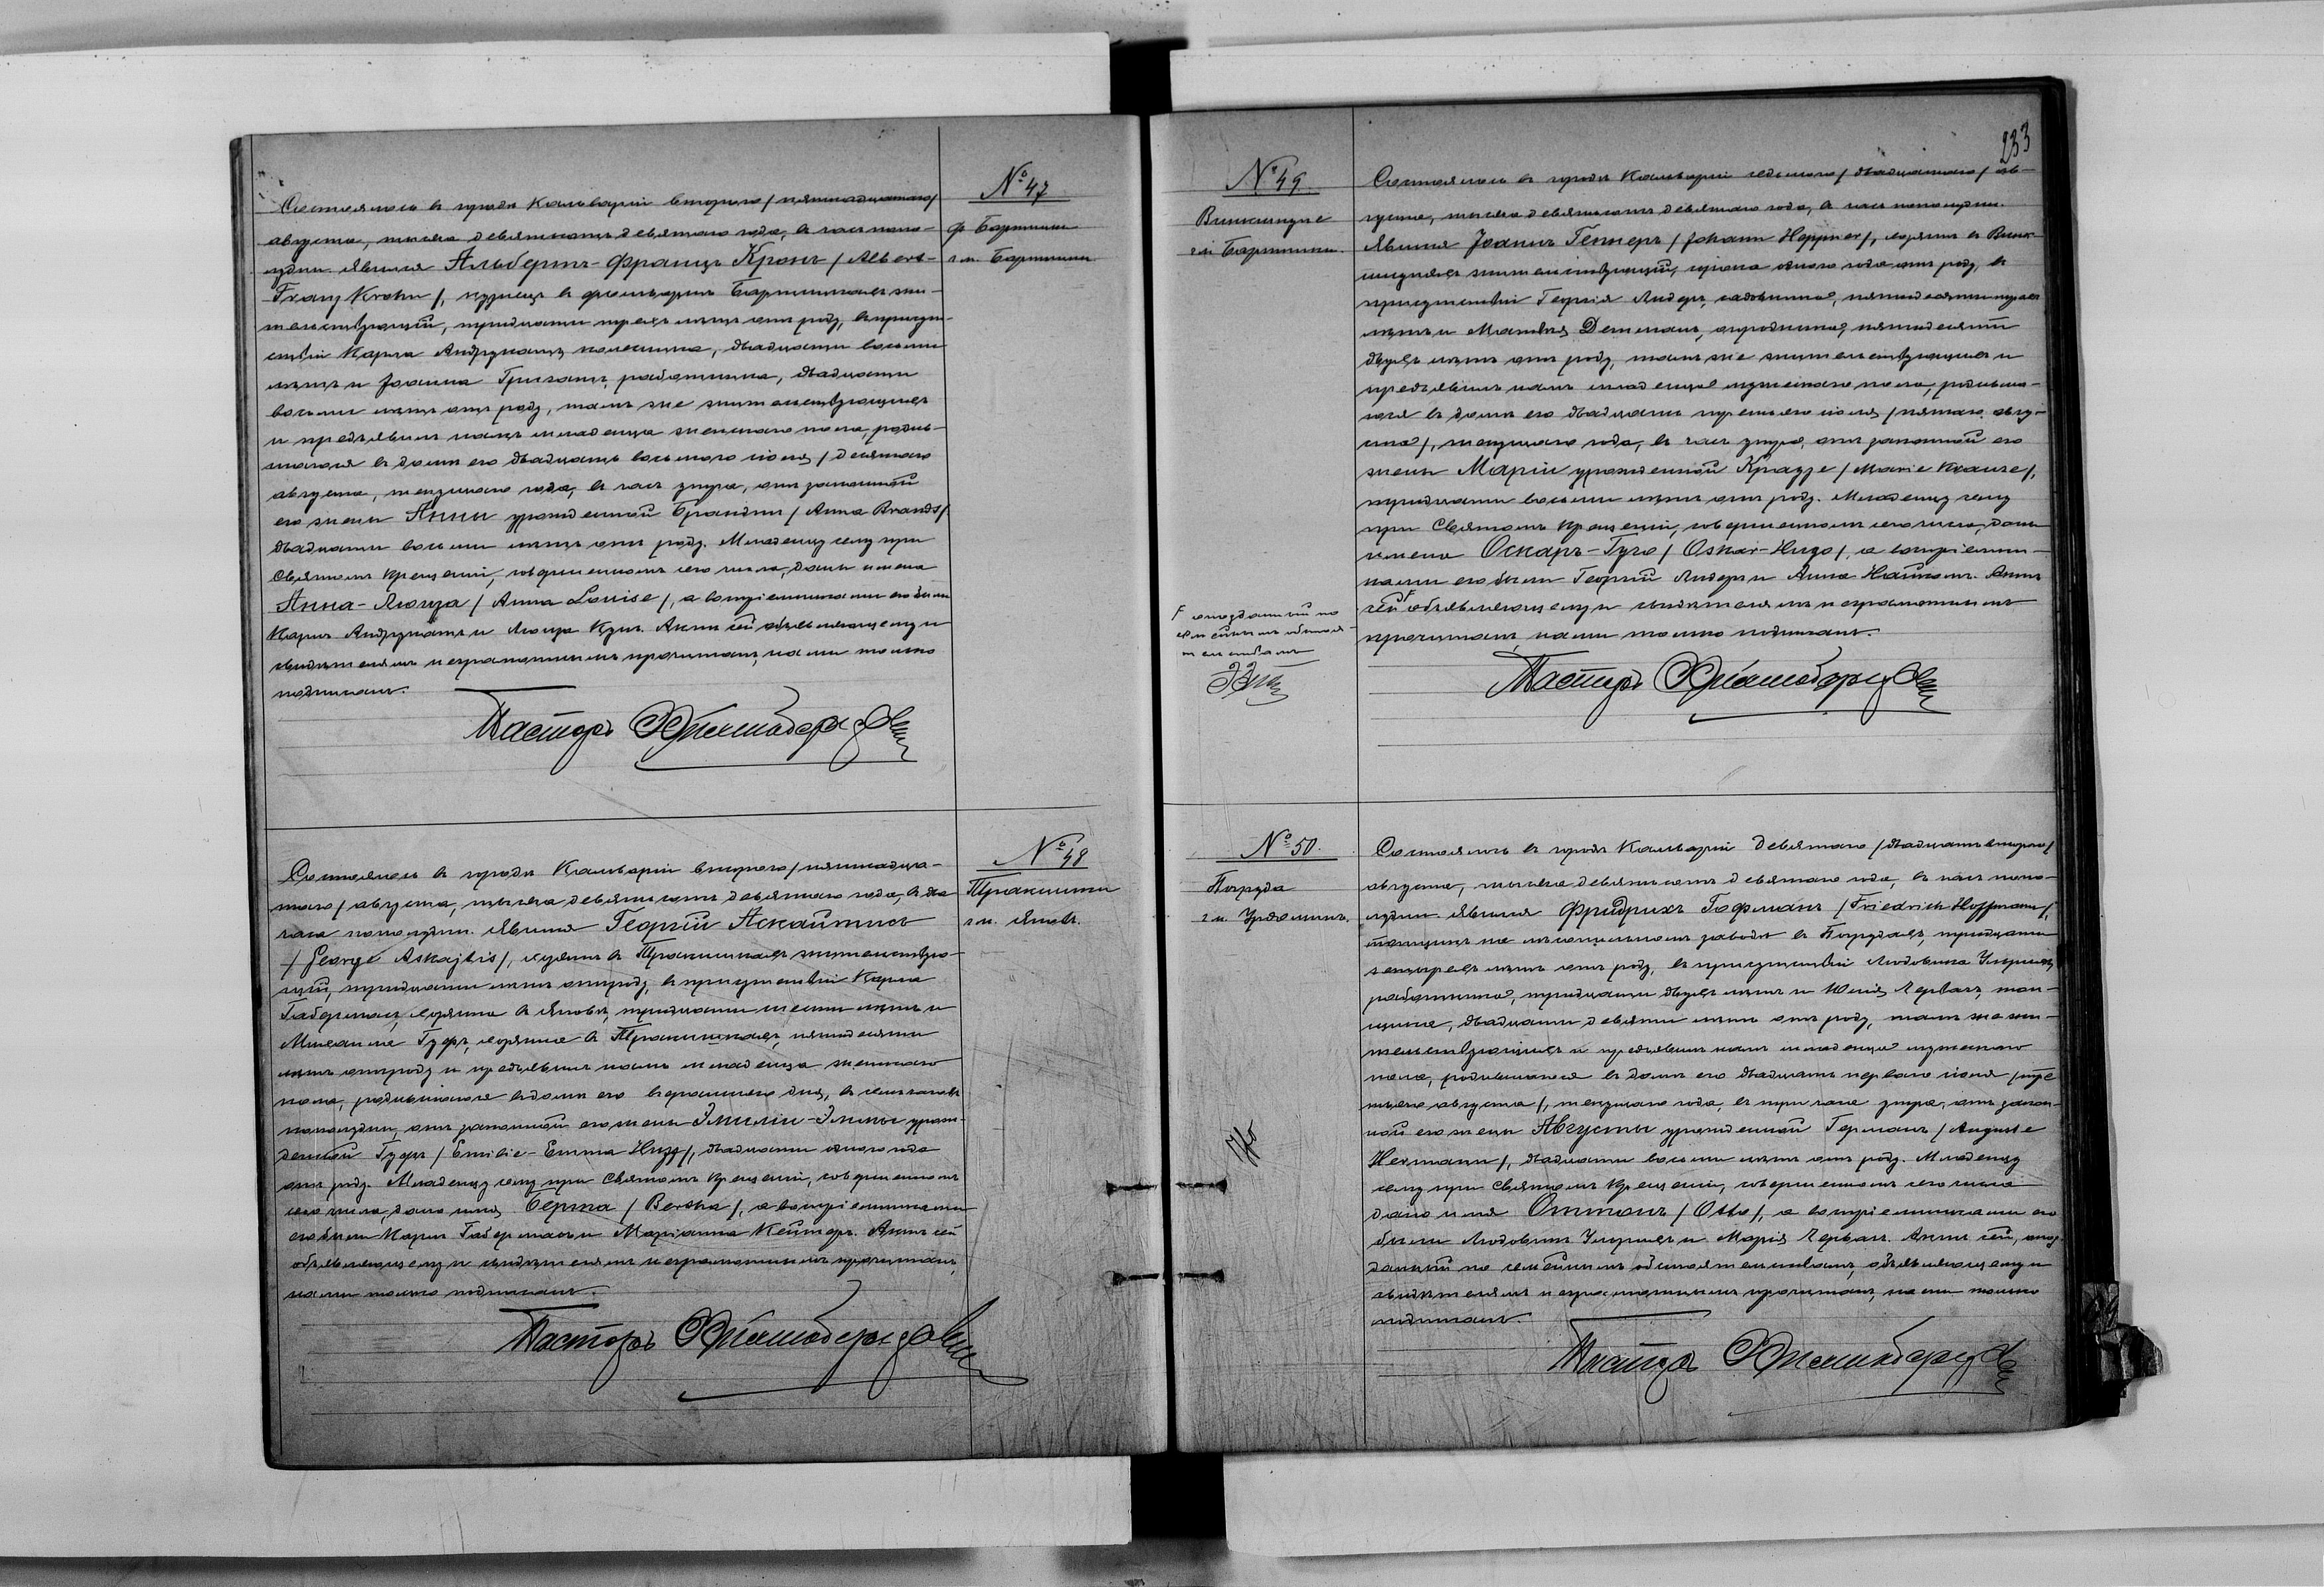 № 47
ф. Бартники
гм. Бартники.
Состоялось в городе Кальварiи второго/пятнадцатаго/
августа, тысяча девятьсотъ девятаго года, в часъ попо-
лудни. Явился Альбертъ-Францъ Кронъ / Albert-
-Franz Krohn /, кузнецъ в фольварке Бартникахъ жи-
тельствующiй, тридцати трехъ летъ отъ роду, в присут-
ствiи Карла Андрукатъ колесника, двадцати восьми
летъ и Јоанна Григатъ, работника, двадцати
восьми летъ отъ роду, тамъ же жительствующихъ
и предъявилъ намъ младенца женскаго пола, родив-
шагося в доме его двадцать восьмого iюля / десятаго
августа, текущаго года, в часъ утра, отъ законной
его жены Анны урожденной Брандтъ / Anna Brandt /
двадцати восьми летъ отъ роду. Младенцу сему при
Святомъ Крещенiи, совершенномъ сего числа, даны имена
Анна-Луиза / Anna Louise /, а воспрiемниками его были
Карлъ Андрукатъ и Луиза Кун. Актъ сей объявляющему и
свидетелямъ неграмотнымъ прочитанъ, нами только
подписанъ.
Пасторъ
№ 48
Тракишки
гм. Яновъ.
Состоялось в городе Кальварiи второго / пятнадца-
таго / августа, тысяча девятьсотъ девятаго года, в два
часа пополудни. Явился Георгiй Аскайтисъ
/ George Askajtis /, в Тракишкахъ жительствую-
щiй, тридцати летъ отъ роду, в присутствiи Карла
Габерманъ, в Янове, тридцати шести летъ и
Гуфъ, в Тракишкахъ, пятидесяти
летъ отъ роду и предъявилъ намъ младенца женскаго
пола, родившагося в доме его вчерашняго дня, в семь часовъ
пополудни, отъ законной его жены Эмилiи-Эммы урож-
денной Гуфъ / Emilie-Emma /, двадцати одного года
отъ роду. Младенцу сему при Святомъ Крещенiи, совершенномъ
сего числа, дано имя Берта / Bertha /, а воспрiемниками
его были Карлъ Габерманъ и Марiанна Кейтеръ. Актъ сей
объявляющему и свидетелямъ неграмотнымъ прочитанъ,
нами только подписанъ.
Пасторъ
233
№ 49.
гм Бартники.
Состоялось в городе Кальварiи седьмого / двадцатаго / ав-
густа, тысяча девятьсотъ девятаго года, в часъ пополудни.
Явился Јоаннъ Геппнеръ / Johann Heppner /,
жительствующiй, сорока одного года отъ роду, в
присутствiи Георгiя Лидеръ, садовника, пятидесяти
летъ и Матвея Детманъ, огородника, пятидесяти
двухъ летъ отъ роду, тамъ же жительствующихъ и
предъявилъ намъ младенца мужескаго пола, родивша-
гося в доме его двадцать третьяго iюля / пятаго авгу-
ста /, текущаго года, в часъ утра, отъ законной его
жены Марiи урожденной Краузе / Marie Krause /,
тридцати восьми летъ отъ роду. Младенцу сему
при Святомъ Крещенiи, совершенномъ сего числа, даны
имена Оскаръ-Гуго / Oskar-Hugo /, а воспрiемни-
ками его были Георгiй Лидеръ и Анна Нойманъ. Актъ
сей F объявляющему и свидетелямъ неграмотнымъ
прочитанъ, нами только подписанъ.
F опозданный по
семейнымъ обстоя-
тельствамъ
Пасторъ
№ 50.
Погруда
гм. Урдоминъ.
Состоялось в городе Кальварiи девятаго / двадцать второго /
августа, тысяча девятьсотъ девятаго года, в часъ попо-
лудни. Явился Фридрихъ Гофманъ / Friedrich Hoffmann /,
на заводе в Погрудахъ, тридцати
четырехъ летъ отъ роду, в присутствiи Людовика
работника, тридцати двухъ летъ и Юлiя Червахъ,
двадцати девяти летъ отъ роду, тамъ же жи-
тельствующихъ и предъявилъ намъ младенца мужескаго
пола, родившагося в доме его двадцать перваго iюля / тре-
тьяго августа /, текущаго года, в три часа утра, отъ закон-
ной его жены Августы урожденной Германъ / Auguste
Hermann /, двадцати восьми летъ отъ роду. Младенцу
сему при Святомъ Крещенiи, совершенномъ сего числа
дано имя Оттонъ / Otto /, а воспрiемниками его
были Людовикъ и Марiя Червахъ. Актъ сей, опоз-
данный по семейнымъ обстоятельствамъ, объявляющему и
свидетелямъ неграмотнымъ прочитанъ, нами только
подписанъ.
Пасторъ